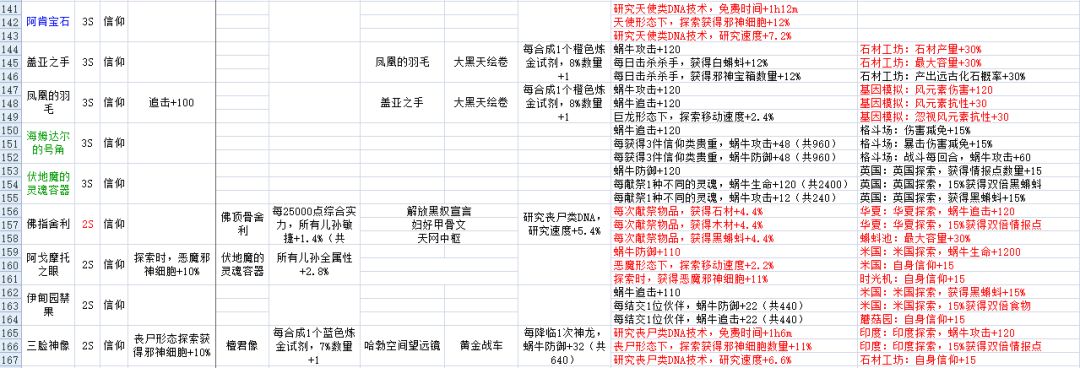 141 研究天使类DNA技术，免费时间+1h12m
142 阿肯宝石 3S 信仰 天使形态下，探索获得邪神细胞+12%
143 研究天使类DNA技术，研究速度+7.2%
144 蜗牛攻击+120 石材工坊：石材产量+30%
145 盖亚之手 3S 信仰 凤凰的羽毛 大黑天绘卷 每合成1个橙色炼金试剂，8%数量+1 每日击杀杀手，获得白蝌蚪+12% 石材工坊：最大容量+30%
146 每日击杀杀手，获得邪神宝箱数量+12% 石材工坊：产出远古化石概率+30%
147 蜗牛攻击+120 基因模拟：风元素伤害+120
148 凤凰的羽毛 3S 信仰 追击+100 盖亚之手 大黑天绘卷 每合成1个橙色炼金试剂，8%数量+1 蜗牛追击+120 基因模拟：风元素抗性+30
149 巨龙形态下，探索移动速度+2.4% 基因模拟：忽视风元素抗性+30
150 蜗牛追击+120 格斗场：伤害减免+15%
151 海姆达尔的号角 3S 信仰 每获得3件信仰类贵重，蜗牛攻击+48（共960） 格斗场：暴击伤害减免+15%
152 每获得3件信仰类贵重，蜗牛防御+48（共960） 格斗场：战斗每回合，蜗牛攻击+60
153 蜗牛防御+120 英国：英国探索，获得情报点数量+15
154 伏地魔的灵魂容器 3S 信仰 每献祭1种不同的灵魂，蜗牛生命+120（共2400） 英国：英国探索，15%获得双倍黑蝌蚪
155 每献祭1种不同的灵魂，蜗牛追击+12（共240） 英国：英国探索，获得黑蝌蚪+15%
156 每次献祭物品，获得石材+4.4% 华夏：华夏探索，蜗牛追击+120
157 佛指舍利 2S 信仰 佛顶骨舍利 每25000点综合实力，所有儿孙敏捷+1.4%（共 解放黑奴宣言 妇好甲骨文 天网中枢 研究丧尸类DNA，研究速度+5.4% 每次献祭物品，获得木材+4.4% 华夏：华夏探索，15%获得双倍情报点
158 每次献祭物品，获得黑蝌蚪+4.4% 蝌蚪池：最大容量+30%
159 蜗牛防御+110 米国：米国探索，蜗牛生命+1200
160 阿戈摩托之眼 2S 信仰 探索时，恶魔邪神细胞+10% 伏地魔的灵魂容器 所有儿孙全属性+2.8% 恶魔形态下，探索移动速度+2.2% 米国：自身信仰+15
161 探索时，获得恶魔邪神细胞+11% 时光机：自身信仰+15
162 蜗牛追击+110 米国：米国探索，获得黑蝌蚪+15%
163 伊甸园禁果 2S 信仰 每结交1位伙伴，蜗牛防御+22（共440） 米国：米国探索，15%获得双倍食物
164 每结交1位伙伴，蜗牛追击+22（共440） 蘑菇园：自身信仰+15
165 研究丧尸类DNA技术，免费时间+1h6m 印度：印度探索，蜗牛攻击+120
166 三脸神像 2S 信仰 丧尸形态探索获得邪神细胞+10% 檀君像 每合成1个蓝色炼金试剂，7%数量+1 哈勃空间望远镜 黄金战车 每降临1次神龙，蜗牛防御+32（共640） 丧尸形态下，探索获得邪神细胞数量+11% 印度：印度探索，15%获得双倍情报点
167 研究丧尸类DNA技术，研究速度+6.6% 石材工坊：自身信仰+15